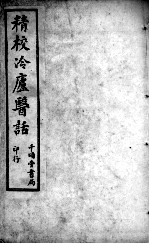 精校冷廬醫話
千頃堂書局
印行